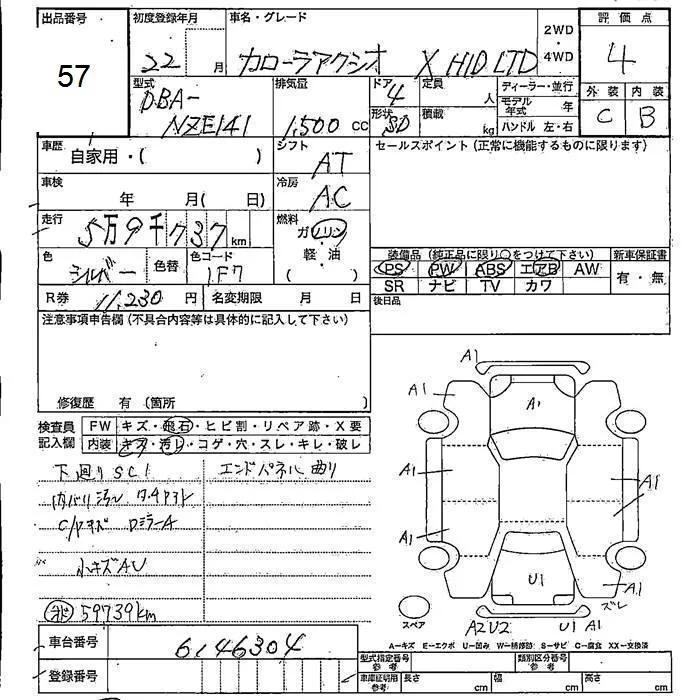 出品番号
57
初度登録年月
22 月
車名・グレード
カローラアクシオ X HID LTD
2WD
・
4WD
評価点
4
外装 内装
C B
型式
DBA-
NZE141
排気量
1,500 cc
ドア
4
形状
SD
定員
人
積載
kg
ディーラー・並行
モデル年式 年
ハンドル 左・右
車歴
自家用・( )
シフト
AT
セールスポイント(正常に機能するものに限ります)
車検
年 月( 日)
冷房
AC
走行
5万9千737km
燃料
ガソリン
・
軽・油
( )
色
シルバー
色替
色コード
1F7
装備品(純正品に限り○をつけて下さい)
新車保証書
PS PW ABS エアB AW
SR ナビ TV カワ
有・無
R券 11,230 円
名変期限 月 日
後日品
注意事項申告欄(不具合内容等は具体的に記入して下さい)
修復歴 有(箇所 )
検査員記入欄
FW キズ・飛石・ヒビ割・リペア跡・X要
内装 キズ・汚レ・コゲ・穴・スレ・キレ・破レ
下廻りSC1
エンドパネル曲り
内バリ汚レ
小キズAU
59739km
A1
A1
A1
A1
A1
A1
A1
U1
A1
ズレ
スペア
A2U2
U1 A1
A=キズ E=エクボ U=凹み W=補修跡 S=サビ C=腐食 XX=交換済
車台番号
6146304
登録番号
型式指定番号参考
類別区分番号参考
車庫証明用参考
長さ cm
幅 cm
高さ cm